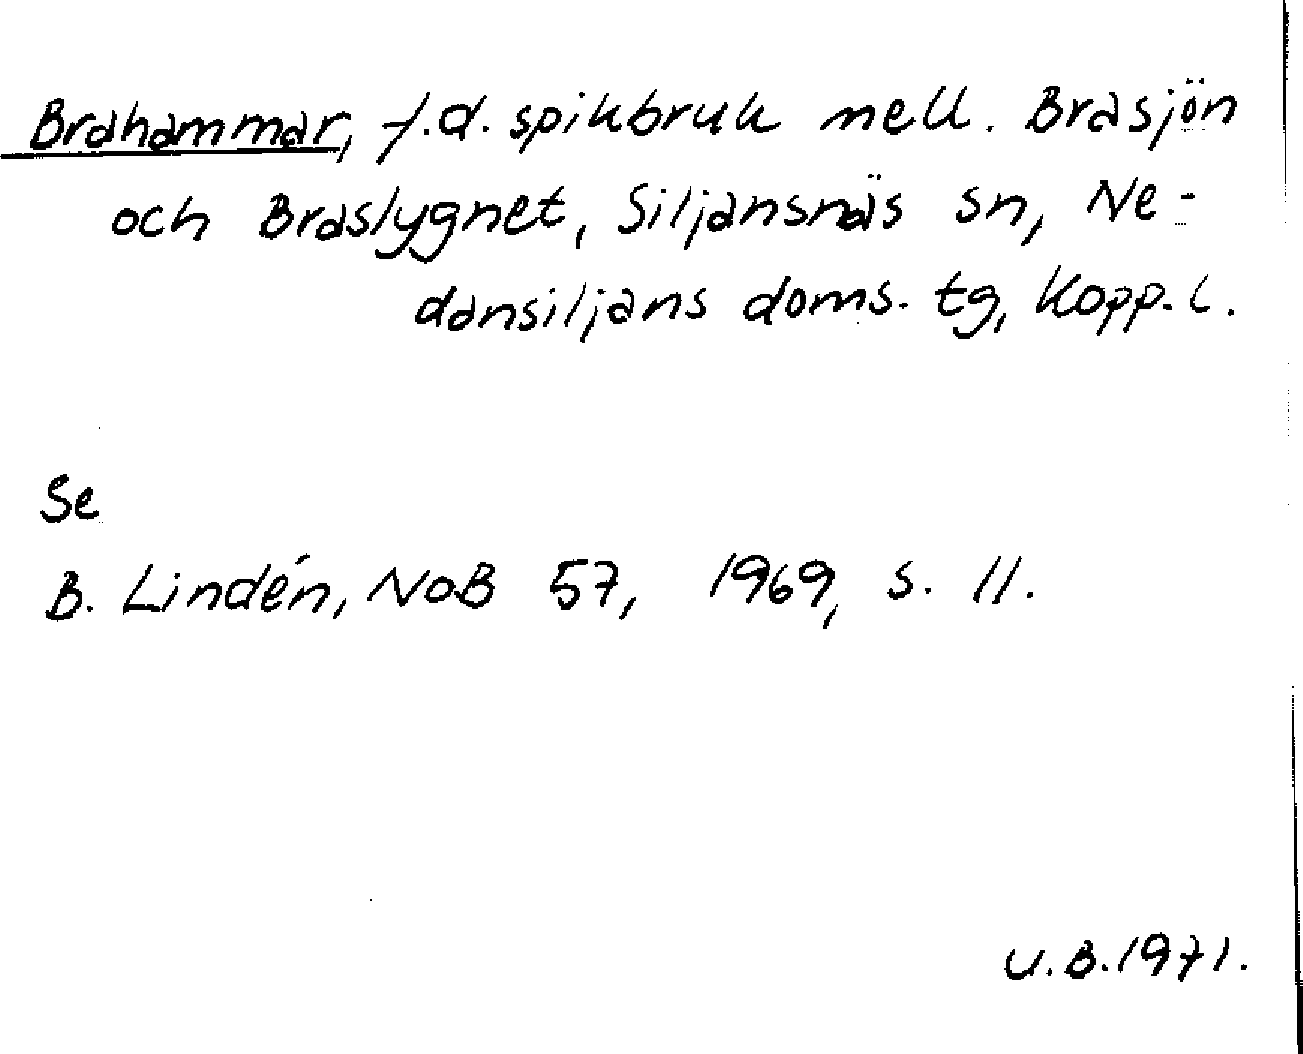 Brahammar, f.d. spikbruk mell. Brasjön
och Braslygnet, Siljansnäs sn, Ne-
dansiljans doms. tg, Kopp. l.
Se
B. Lindén, NoB 57, 1969, s. 11.
U.B. 1971.